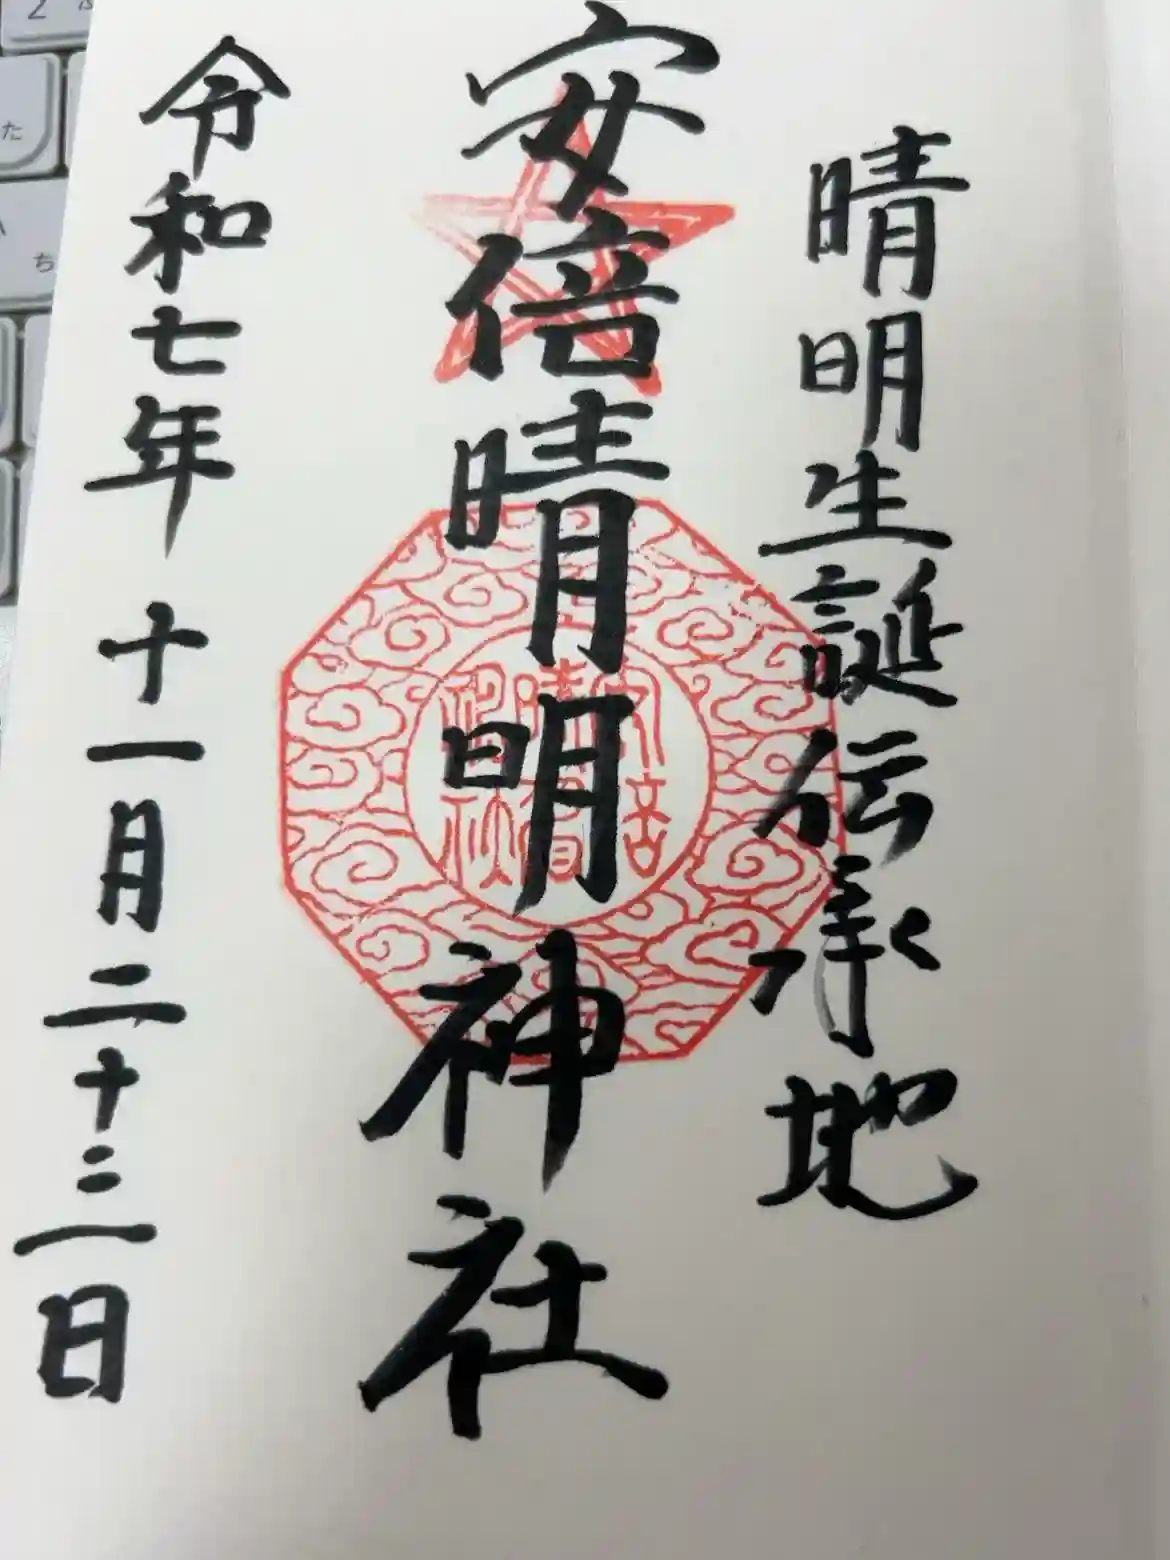 晴明生誕伝承地
安倍晴明神社
令和七年 十一月二十三日
た
ち